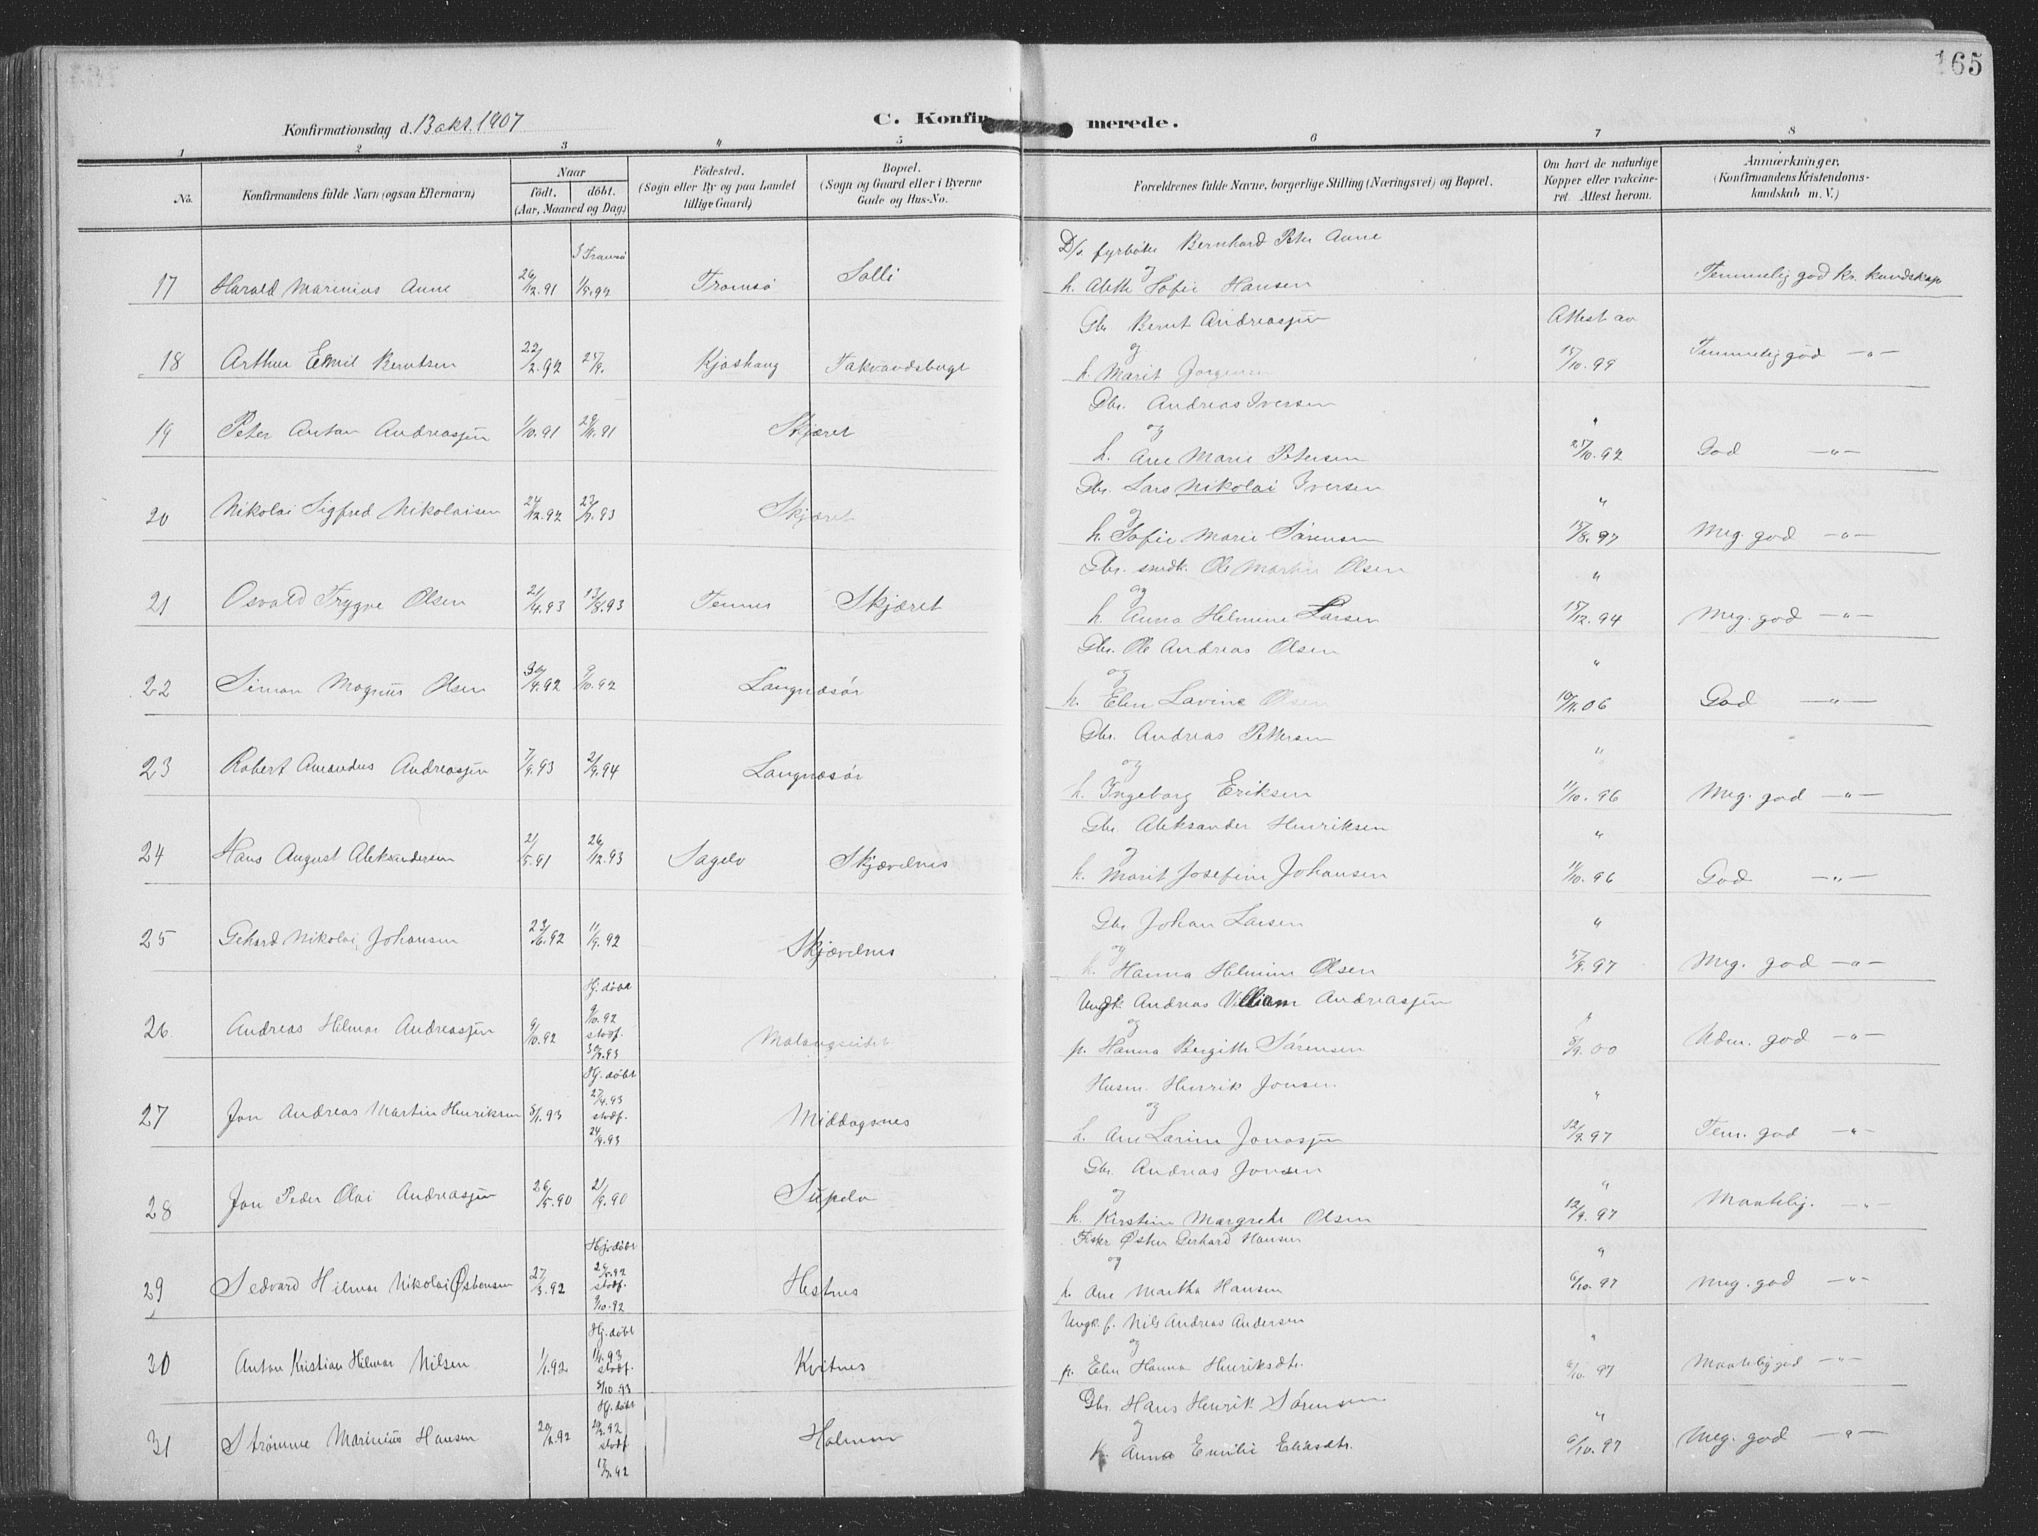 165
Konfirmationsdag d. 13 okt. 1907
C. Konfir merede.
1 2 3 4 5 6 7 8
No.
Konfirmandens fulde Navn (ogsaa Efternavn)
Naar
født. døbt.
(Aar, Maaned og Dag)
Fødested.
(Sogn eller By og paa Landet
tillige Gaard)
Bopæl.
(Sogn og Gaard eller i Byerne
Gade og Hus-No.
Forældrenes fulde Navne, borgerlige Stilling (Næringsvei) og Bopæl.
Om havt de naturlige
Kopper eller vakcine-
ret. Attest herom.
Anmærkninger,
(Konfirmandens Kristendoms-
kundskab m. V.)
D/s fyrbøter Bernhard Peter Aune
og
17 Harald Marinius Aune 26/12.91 Tromsø Solli h. Alette Sofie Hansen Temmelig god kr. kundskap
Gbr. Bernt Andreassen Attest av
og
18 Arthur Emil Berntsen 22/2.92 25/9. Kjoshaug Takvandsbugt h. Marit Jørgensen 15/10.99 Temmelig god -"-
Gbr. Andreas Iversen "
og
19 Peter Anton Andreasjen 1/10.91 29/11.91 Skjæret h. Ane Marie Petersen 25/10.92 God -"-
Gbr. Lars Nikolai Iversen "
og
20 Nikolai Sigfred Nikolaisen 24/12.92 Skjæret h. Sofie Marie Sørensen 15/8.97 Meg. god -"-
Gbr. smedk. Ole Martin Olsen "
og
21 Osvald Trygve Olsen 21/4.93 13/8.93 Tennes Skjæret h. Anna Helmine Larsen 15/12.94 Meg. god -"-
Gbr. Ole Andreas Olsen "
og
22 Simon Magnus Olsen 30/9.92 9/10.92 Langnæsør h. Elen Lavine Olsen 10/11.06 God -"-
Gbr. Andreas Pettersen "
og
23 Robert Amandus Andreasjen 7/9.93 2/9.94 Langnæsør h. Ingeborg Eriksen 11/10.96 Meg. god -"-
Gbr. Aleksander Henriksen "
og
24 Hans August Aleksandersen 21/5.91 26/12.93 Sagelv Skjævelnes h. Marit Josefine Johansen 11/10.96 God -"-
Gbr Johan Larsen "
og
25 Gehard Nikolai Johansen 23/6.92 11/9.92 Skjævelnes h. Hanna Helmine Olsen 5/9.97 Meg. god -"-
Hj. døbt
Ungk. Andreas Villiam Andreasjen
og
26 Andreas Hilmar Andreasjen 9/10.92 9/10.92 stadf. 30/7.93 Malangseidet p. Hanna Bergitte Sørensen 5/9.00 Udm. god -"-
Hj. døbt
Husm. Henrik Jonsen "
og
27 Jon Andreas Martin Henriksen 8/1.93 27/4.93 stadf. 24/9.93 Middagsnes h. Ane Larine Jonasjen 12/9.97 Tem. god -"-
Gbr. Andreas Jonsen "
og
28 Jon Peder Olai Andreasjen 26/5.90 21/9.90 Supelv h. Kirstine Margrete Olsen 12/9.97 Maatelig. -"-
Hj. døbt
Fisker Østen Gerhard Hansen "
og
29 Sedvard Hilmar Nikolai Østensen 27/3.92 stadf. 9/10.92 Hestnes h. Ane Martha Hansen 6/10.97 Meg. god -"-
Hj. døbt
Ungk. f. Nils Andreas Andersen "
og
30 Anton Kristian Hilmar Nilsen 1/1.92 stadf. 8/10.93 Kvitnes p. Elen Hanna Henriksdtr. 6/10.97 Maatelig god -"-
Hj. døbt
Gbr. Hans Henrik Sørensen "
og
31 Strømme Marinius Hansen stadf. Holmen h. Anna Emilie Eliasdtr. 6/10.97 Meg. god -"-